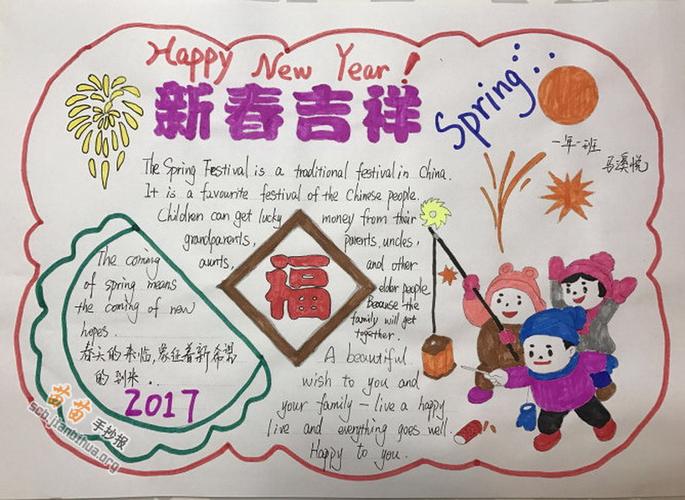 Happy New Year!
新春吉祥
Spring
一年一班
马溪悦
The Spring Festival is a traditional festival in China.
It is a favourite festival of the Chinese people.
Children can get lucky money from their
grandparents, parents, uncles,
aunts, and other
elder people
Because the
family will get
together.
福
The coming
of spring means
the coming of new
hopes.
春天的来临,意味着新希望
的到来...
2017
A beautiful
wish to you and
your family - live a happy
live and everything goes well.
Happy to you.
苗苗手抄报
scb.jianbihua.org